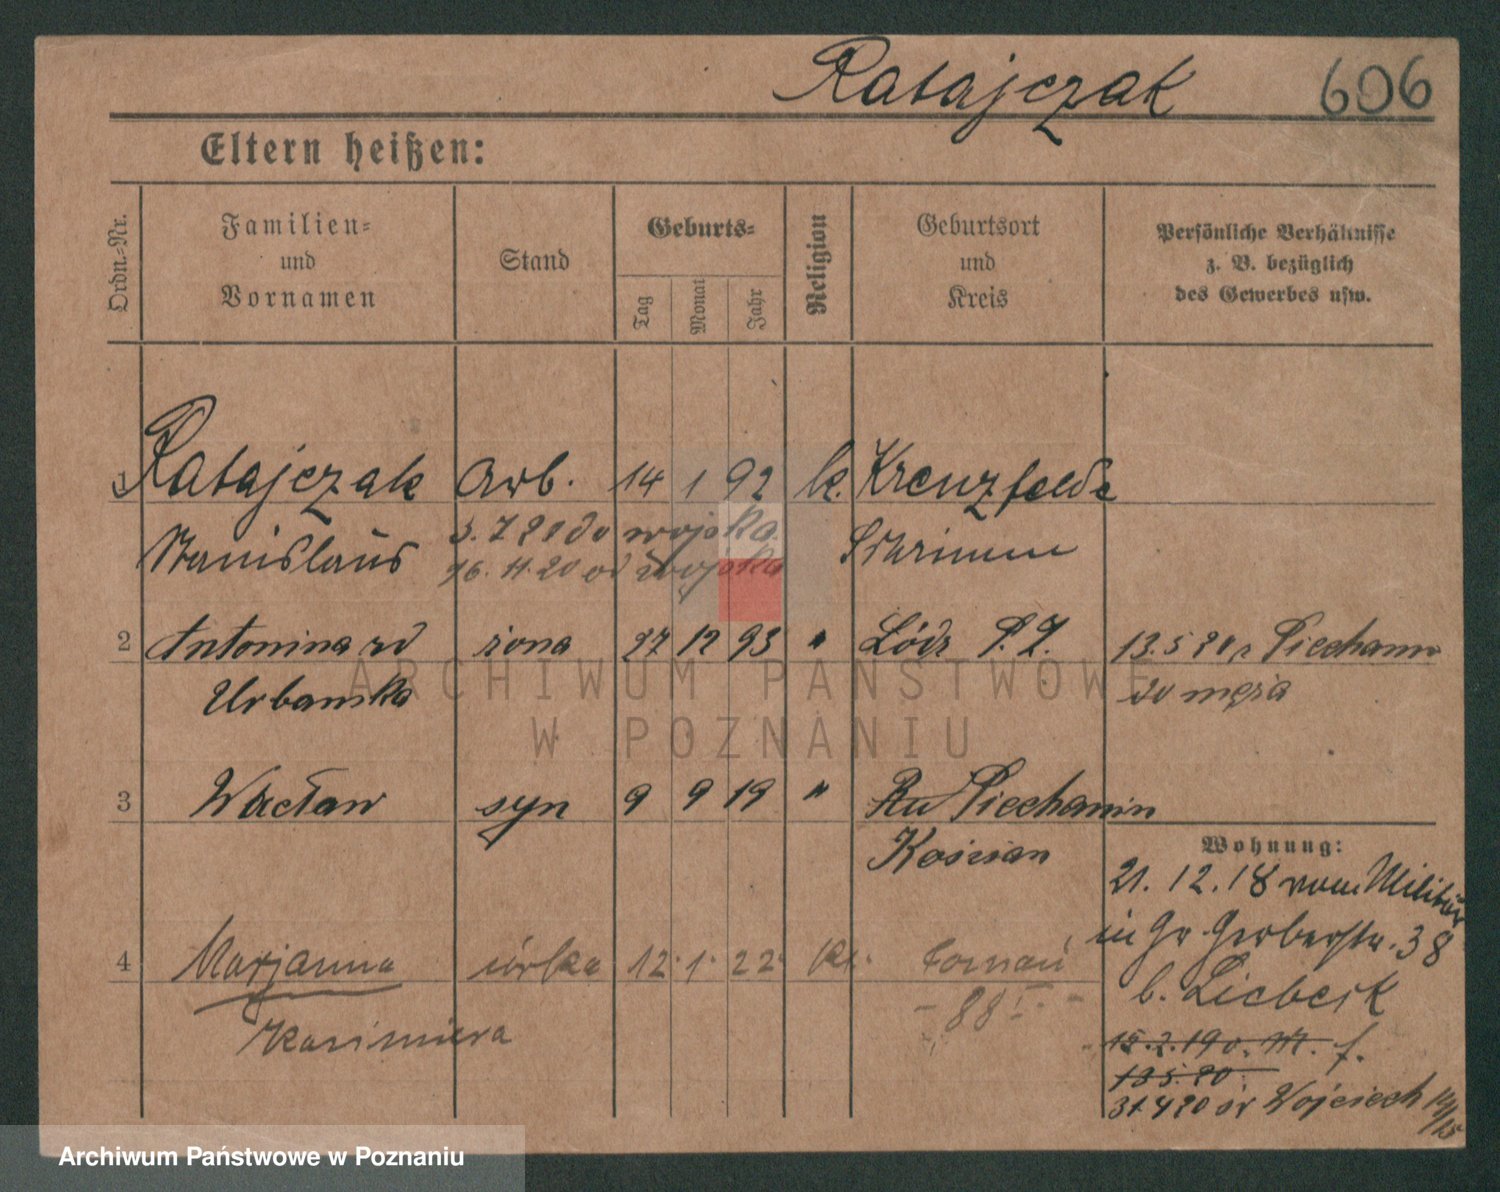 Ratajczak 606
Eltern heißen:
Ordn.-Nr.
Familien-
und
Vornamen
Stand
Geburts-
Tag
Monat
Jahr
Religion
Geburtsort
und
Kreis
Persönliche Verhältnisse
z. B. bezüglich
des Gewerbes usw.
1 Ratajczak Arb. 14 1 92 k. Kreuzfelde
Stanislaus Schrimm
5. 7 20 do wojska
16. 11. 20 od wojska
2 Antonina zd żona 27 12 93 " Łódz P. 13.5 20 z Piechanin
Urbanska do męża
ARCHIWUM PAŃSTWOWE
W POZNANIU
3 Wacław syn 9 9 19 " Piechanin
Kościan
Wohnung:
21. 12. 18 vom Militär
in Gr Gerberstr. 38
b.
4 Marjanna córka 12. 1. 22. kt. Poznań
Kazimiera - 88 I. -
15. 2. 19 v. M. f.
13 5. 20
31 4 20 Wojciech 14/15
Archiwum Państwowe w Poznaniu